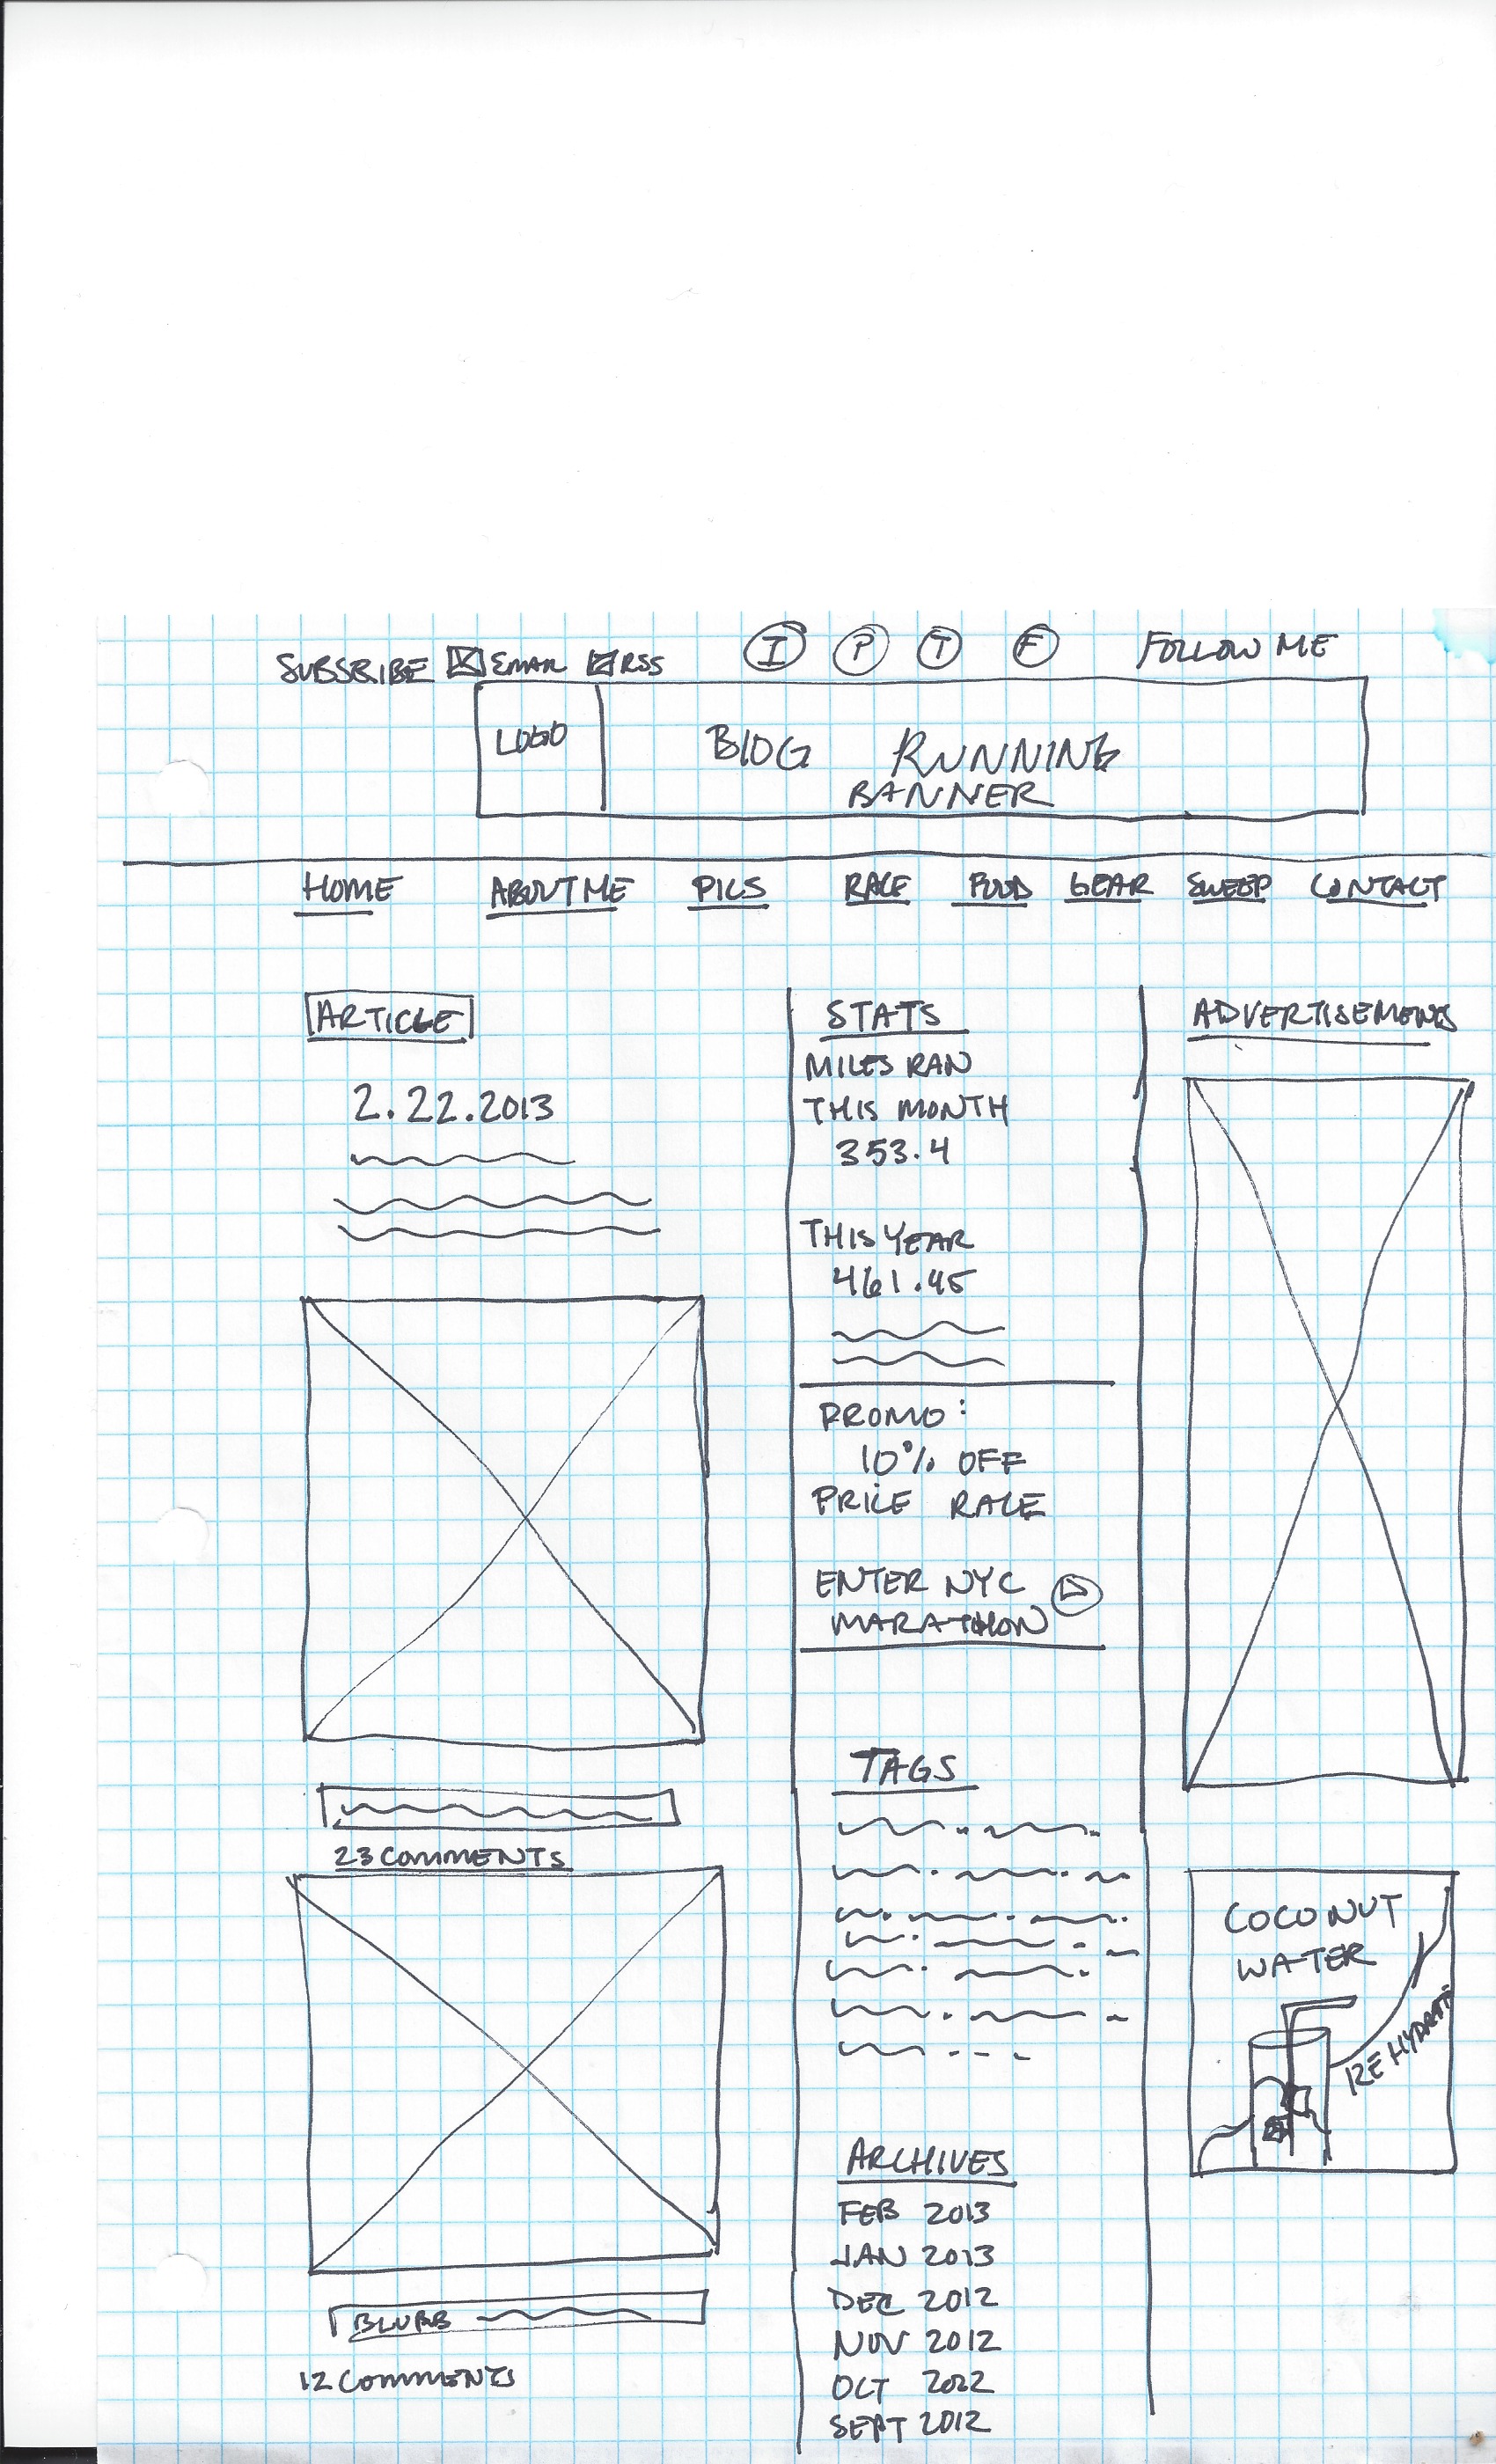 SUBSCRIBE EMAIL RSS
I P T F FOLLOW ME
LOGO
BLOG RUNNING
BANNER
HOME ABOUT ME PICS RACE FOOD GEAR SWEEP CONTACT
ARTICLE
2.22.2013
23 COMMENTS
BLURB
12 COMMENTS
STATS
MILES RAN
THIS MONTH
353.4
THIS YEAR
461.45
PROMO:
10% OFF
PRICE RACE
ENTER NYC
MARATHON
TAGS
ARCHIVES
FEB 2013
JAN 2013
DEC 2012
NOV 2012
OCT 2022
SEPT 2012
ADVERTISEMENTS
COCONUT
WATER
REHYDRATE